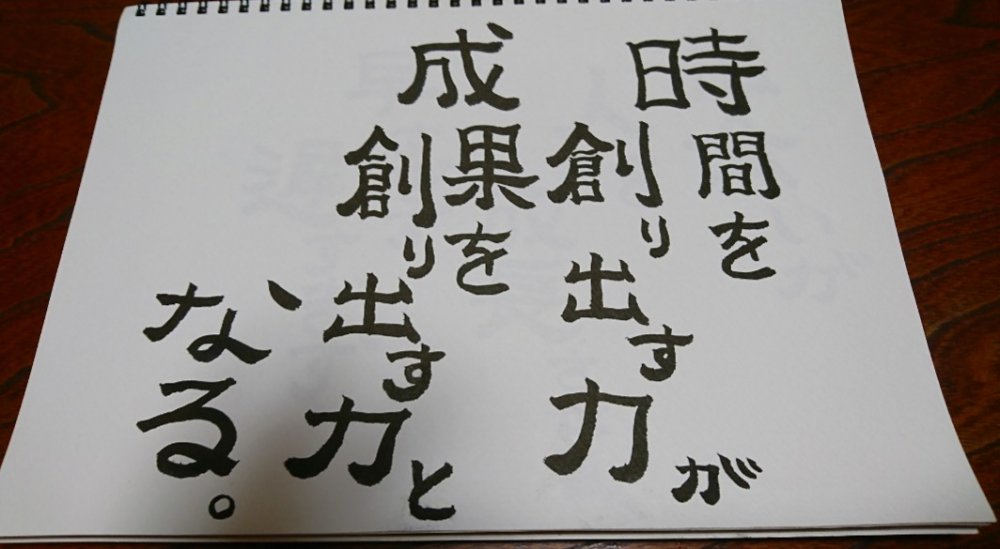 時間を
創り出す力が
成果を
創り出す力と
なる。